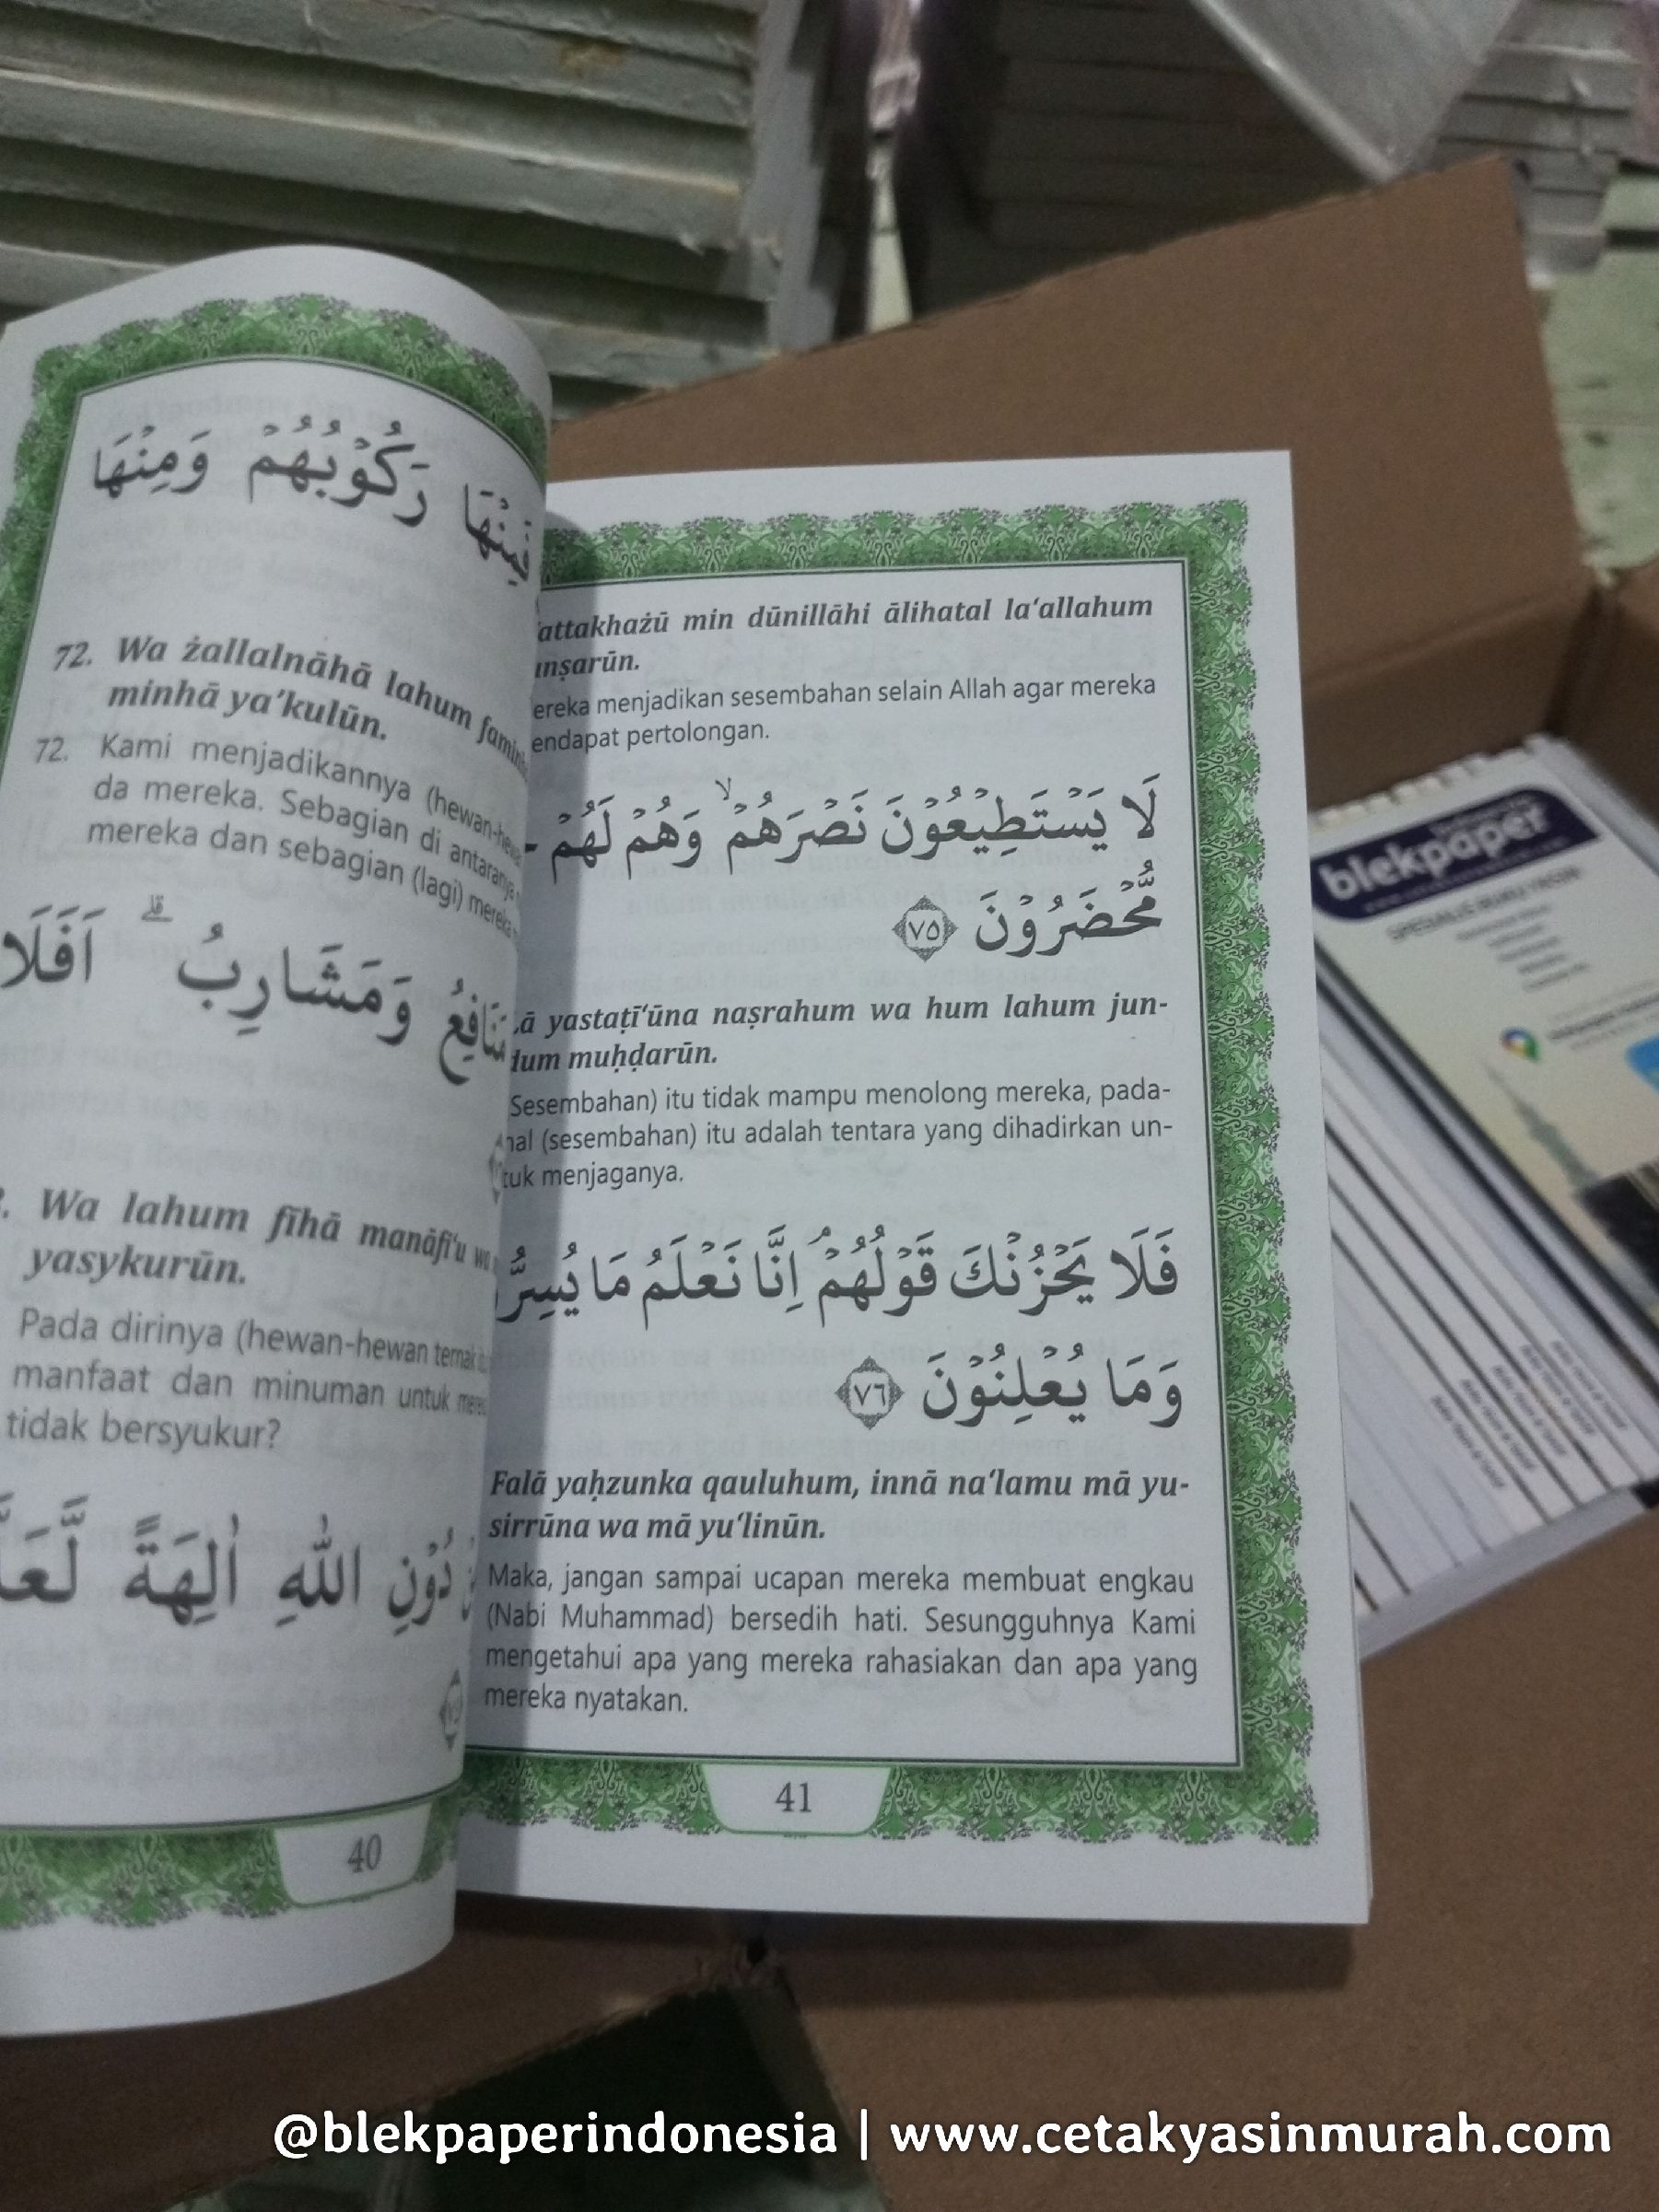 فَمِنْهَا رَكُوْبُهُمْ وَمِنْهَا
72. Wa żallalnāhā lahum
minhā ya’kulūn.
72. Kami menjadikannya
da mereka. Sebagian di antaranya
mereka dan sebagian (lagi)
مَنَافِعُ وَمَشَارِبُ ۗ اَفَلَا
Wa lahum fīhā manāfi‘u
yasykurūn.
Pada dirinya (hewan-hewan ternak
manfaat dan minuman untuk
tidak bersyukur?
دُوْنِ اللّٰهِ اٰلِهَةً
40
min dūnillāhi ālihatal la‘allahum
menjadikan sesembahan selain Allah agar mereka
pertolongan.
لَا يَسْتَطِيْعُوْنَ نَصْرَهُمْۙ وَهُمْ لَهُمْ
مُّحْضَرُوْنَ ۝٧٥
yastaṭī‘ūna naṣrahum wa hum lahum jun-
muḥḍarūn.
Sesembahan) itu tidak mampu menolong mereka, pada-
hal (sesembahan) itu adalah tentara yang dihadirkan un-
tuk menjaganya.
فَلَا يَحْزُنْكَ قَوْلُهُمْ ۘ اِنَّا نَعْلَمُ مَا يُسِرُّ
وَمَا يُعْلِنُوْنَ ۝٧٦
Falā yaḥzunka qauluhum, innā na‘lamu mā yu-
sirrūna wa mā yu‘linūn.
Maka, jangan sampai ucapan mereka membuat engkau
(Nabi Muhammad) bersedih hati. Sesungguhnya Kami
mengetahui apa yang mereka rahasiakan dan apa yang
mereka nyatakan.
41
blekpaper
@blekpaperindonesia | www.cetakyasinmurah.com